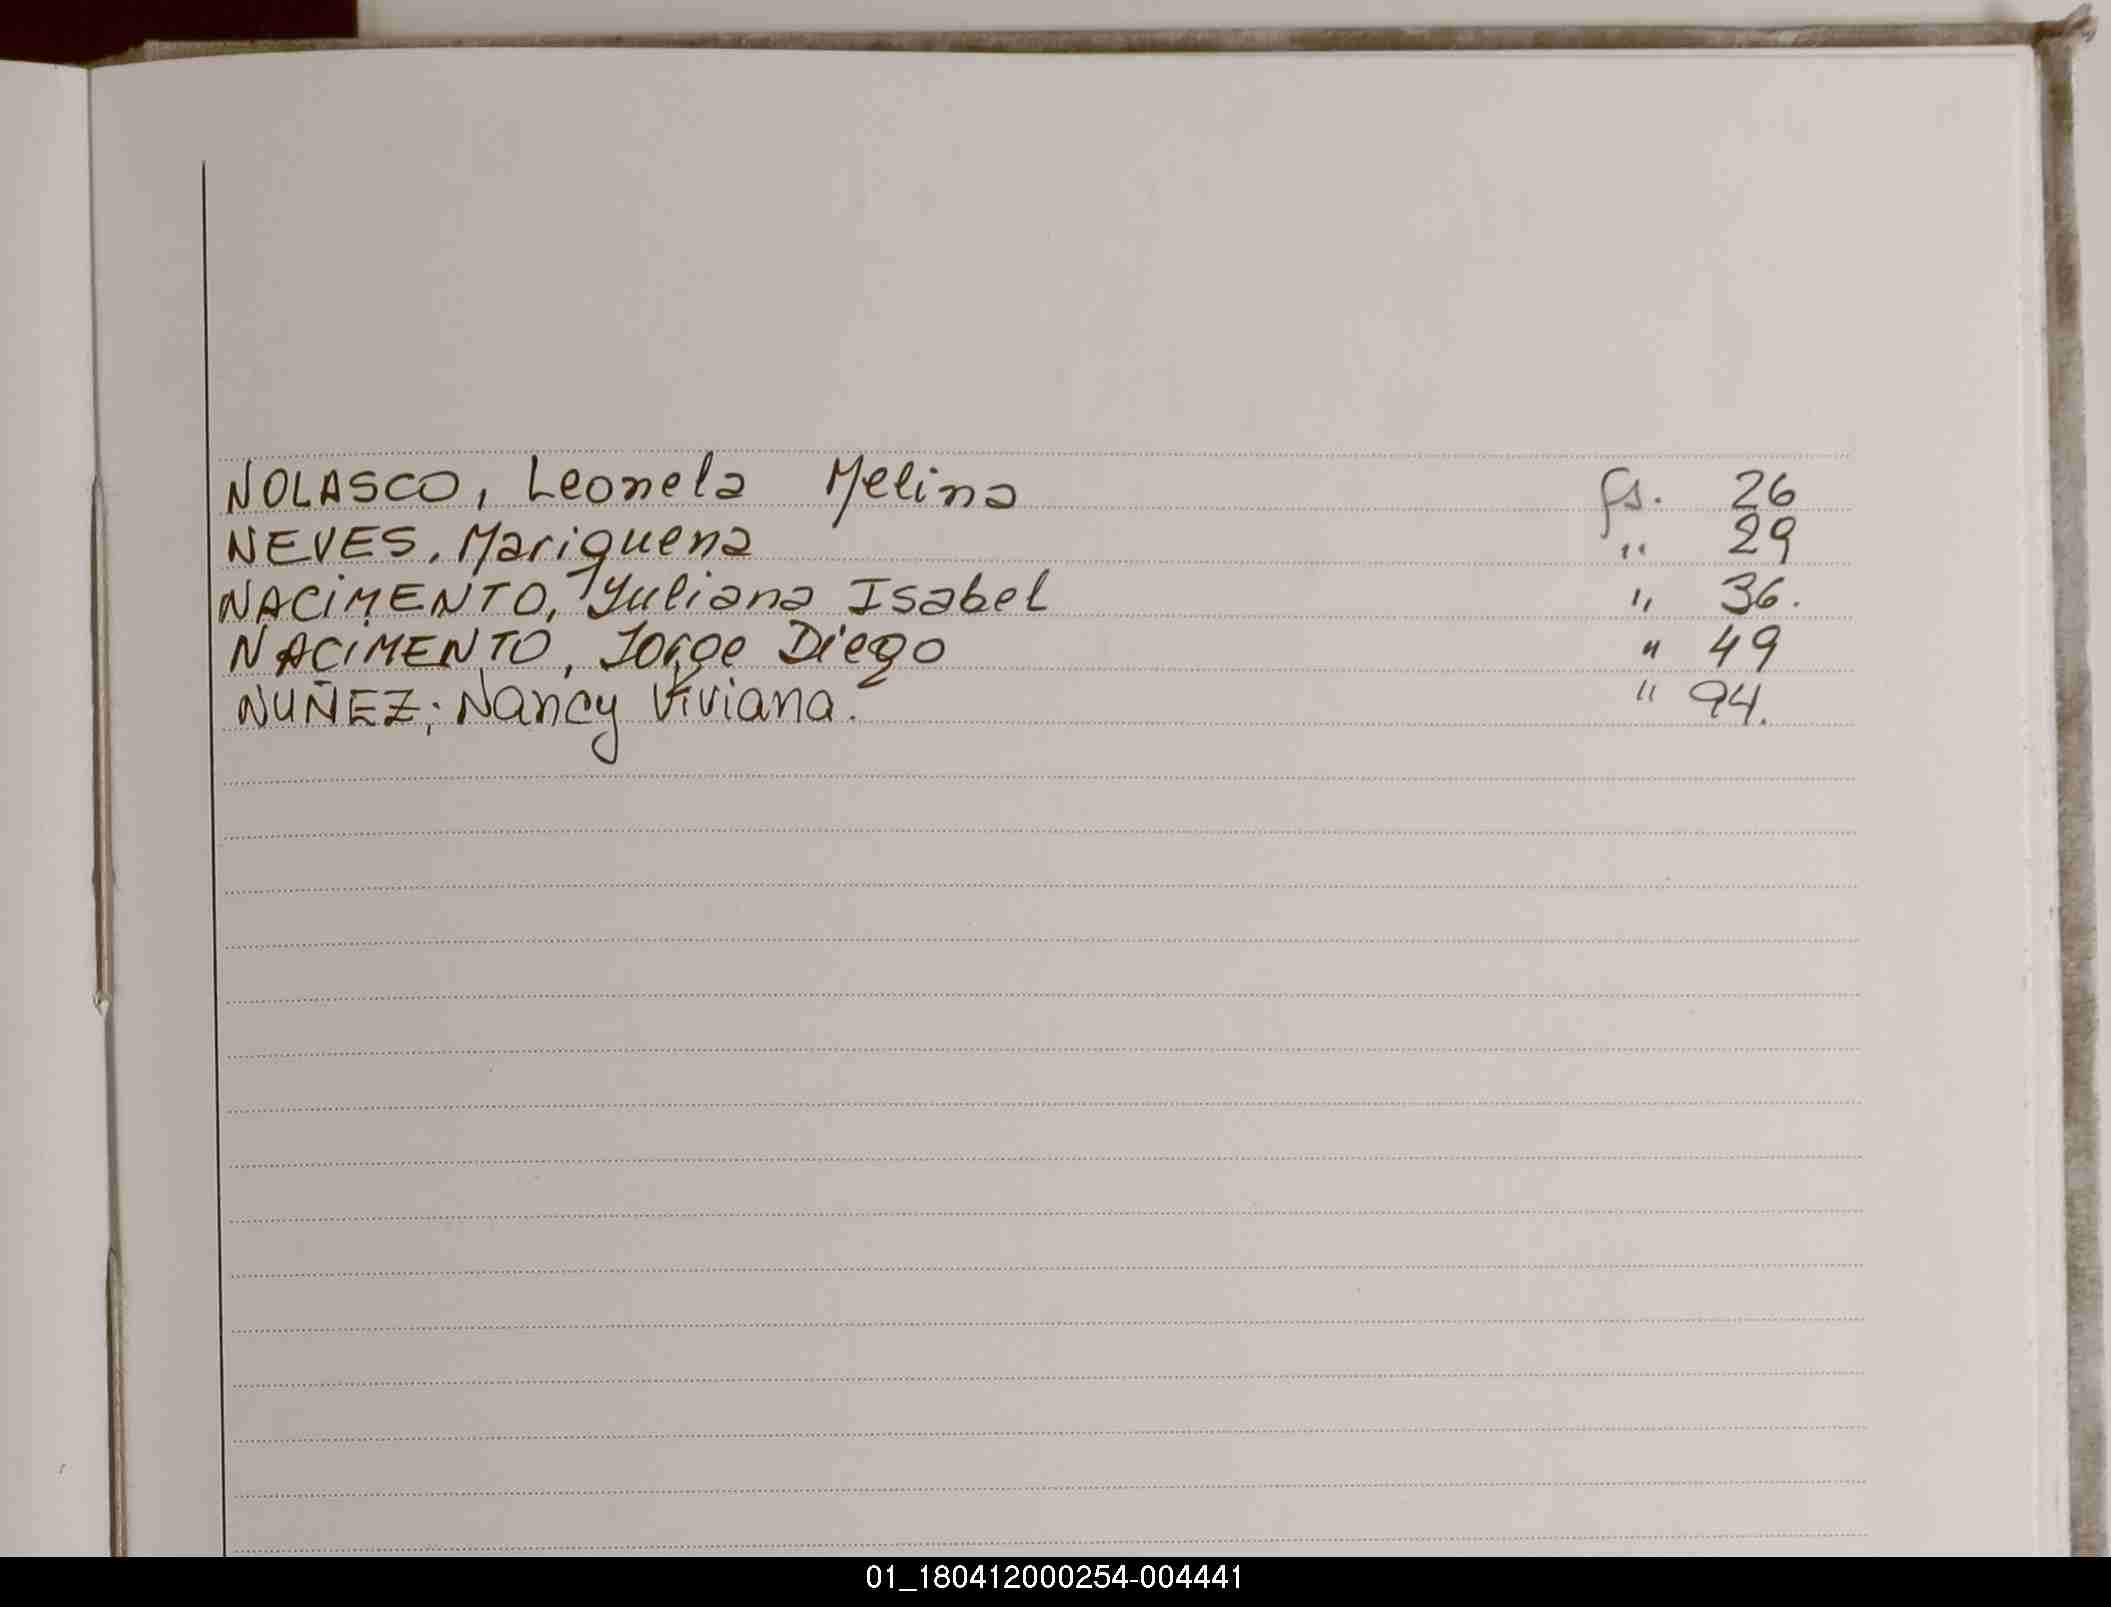 NOLASCO, Leonela Melina fs. 26
NEVES, Mariquena " 29
NACIMENTO, Yuliana Isabel " 36.
NACIMENTO, Jorge Diego " 49
NUÑEZ; Nancy Viviana. " 94.
01_180412000254-004441